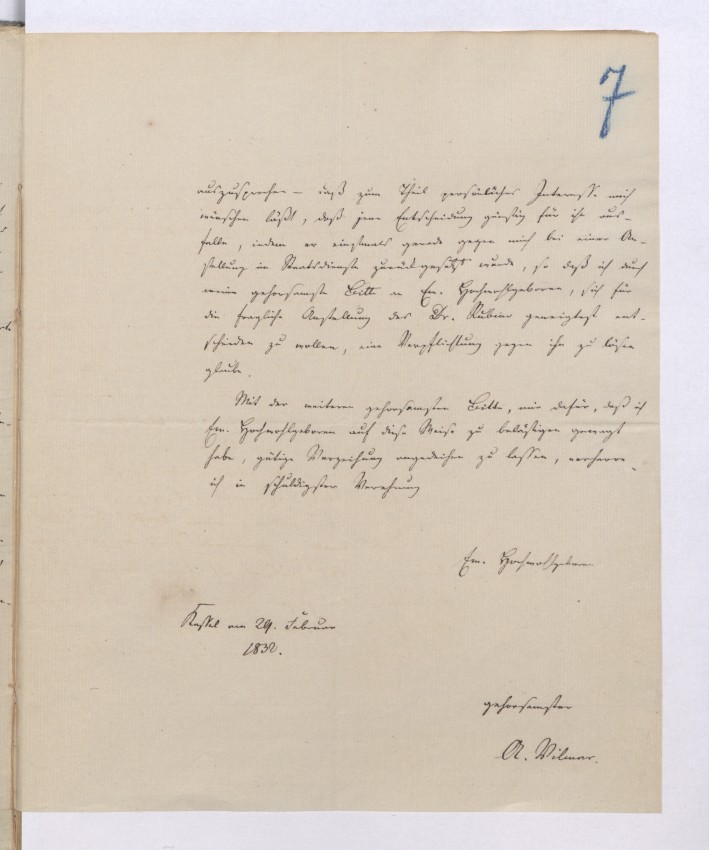 7
auszusprechen – daß zum Theil persönliches Interesse mich
wünschen läßt, daß jene Entscheidung günstig für ihn aus-
falle, indem er einstmals gerade gegen mich bei einer An-
stellung im Staatsdienste zurückgesetzt wurde, so daß ich durch
meine gehorsamste Bitte an Ew. Hochwohlgeboren, sich für
die fragliche Anstellung des Dr. Rubino geneigtest ent-
scheiden zu wollen, eine Verpflichtung gegen ihn zu lösen
glaube.
Mit der weiteren gehorsamsten Bitte, mir dafür, daß ich
Ew. Hochwohlgeboren auf diese Weise zu belästigen gewagt
habe, gütige Verzeihung angedeihen zu lassen, verharre
ich in schuldigster Verehrung
Ew. Hochwohlgeboren
Kassel am 29. Februar
1832.
gehorsamster
A. Vilmar.